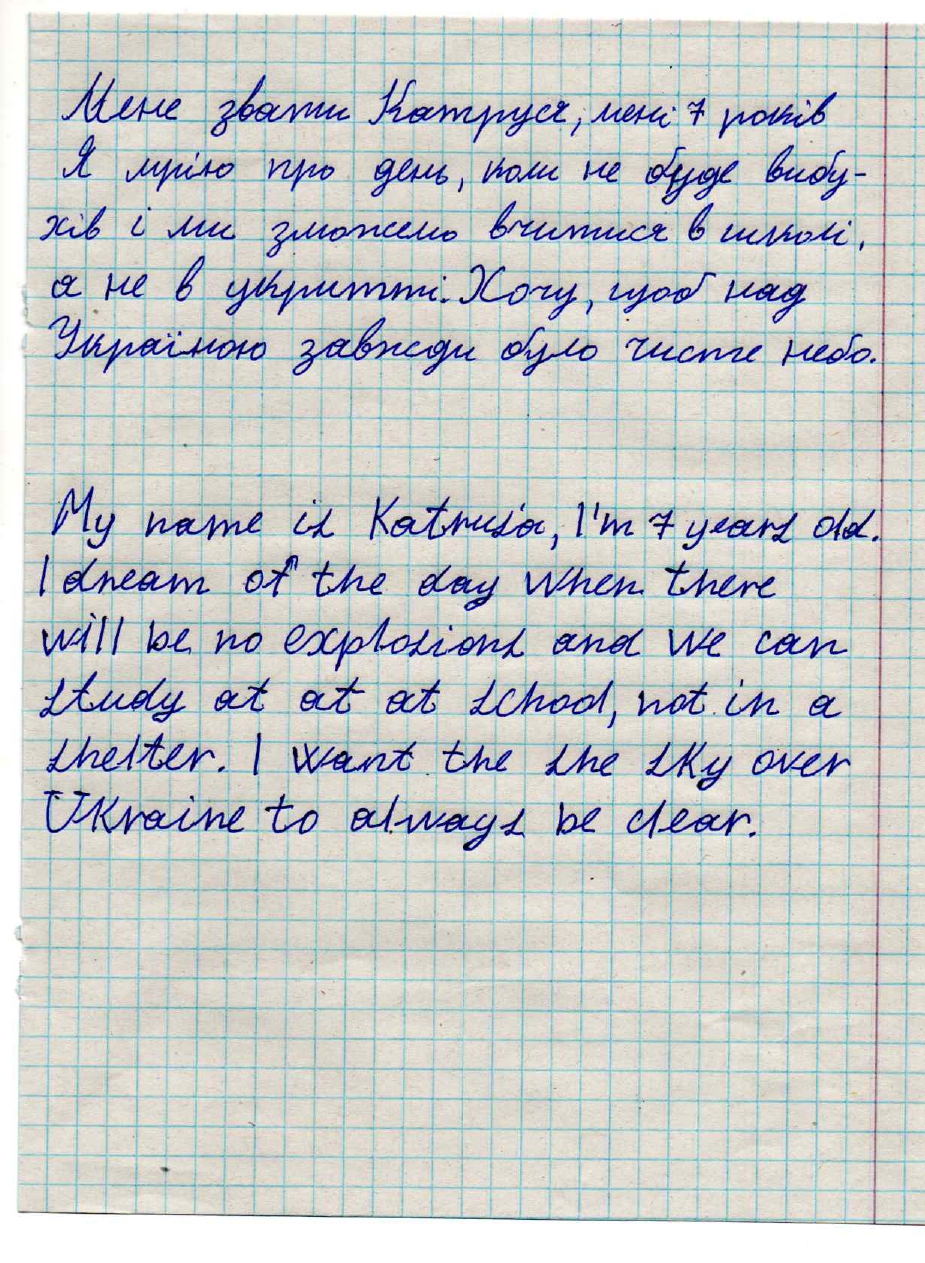 Мене звати Катруся, мені 7 років
Я мрію про день, коли не буде вибу-
хів і ми зможемо вчитися в школі,
а не в укритті. Хочу, щоб над
Україною завжди було чисте небо.
My name is Katrusia, I'm 7 years old.
I dream of the day when there
will be no explosions and we can
study at at at school, not in a
shelter. I want the she sky over
Ukraine to always be clear.